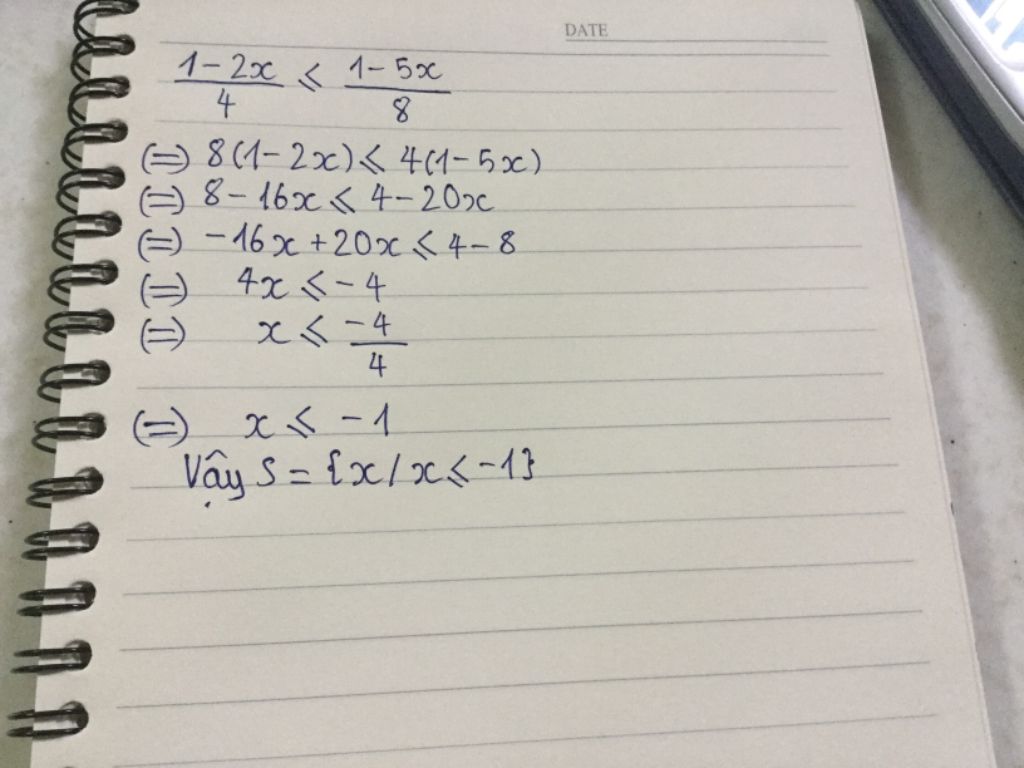 DATE
1-2x/4 ≤ 1-5x/8
(=) 8(1-2x) ≤ 4(1-5x)
(=) 8-16x ≤ 4-20x
(=) -16x+20x ≤ 4-8
(=) 4x ≤ -4
(=) x ≤ -4/4
(=) x ≤ -1
Vậy S = {x/x ≤ -1}